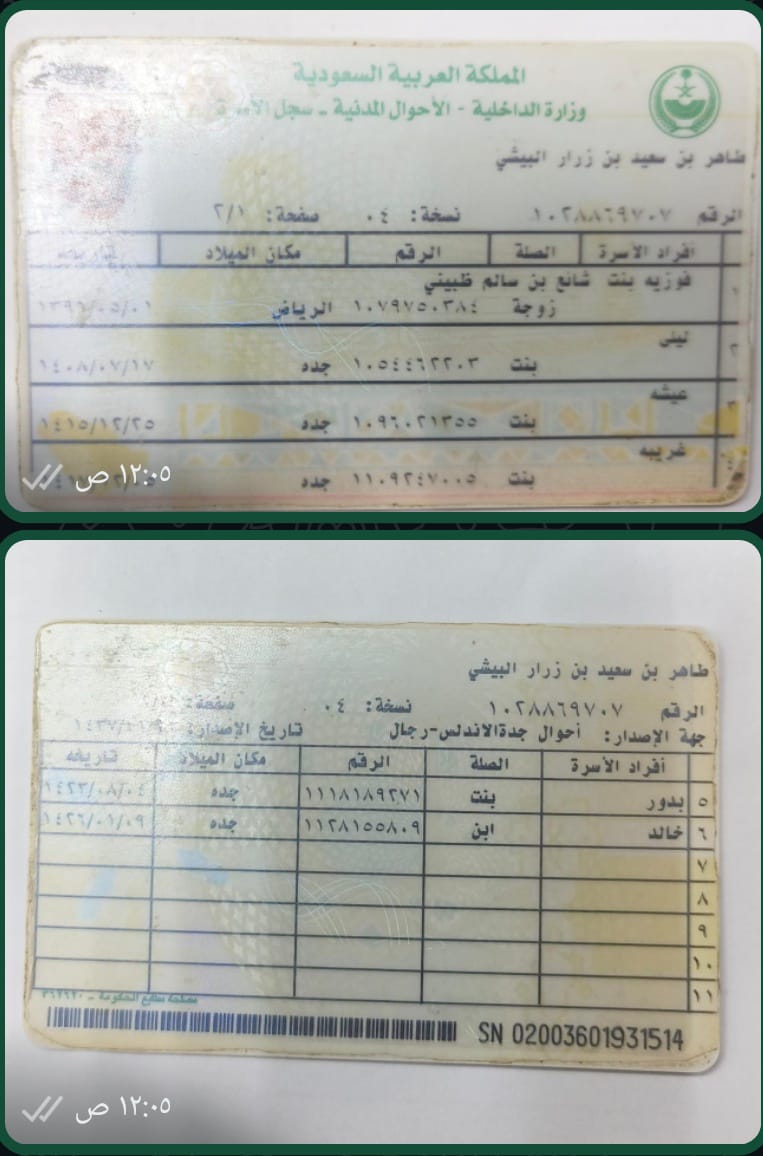 المملكة العربية السعودية
وزارة الداخلية - الأحوال المدنية - سجل الأسرة
طاهر بن سعيد بن زرار البيشي
الرقم ١٠٢٨٨٦٩٧٠٧ نسخة: ٠٤ صفحة: ٢/١
أفراد الأسرة الصلة الرقم مكان الميلاد تاريخه
١ فوزيه بنت شائع بن سالم ظبيني
زوجة ١٠٧٩٧٥٠٣٨٤ الرياض ١٣٩٦/٠٥/٠١
٢ ليلى
بنت ١٠٥٤٤٦٢٢٠٣ جده ١٤٠٨/٠٧/١٧
٣ عيشه
بنت ١٠٩٦٠٢١٣٥٥ جده ١٤١٥/١٢/٢٥
غريبه
بنت ١١٠٩٢٤٧٠٠٥ جده
١٢:٠٥ ص
طاهر بن سعيد بن زرار البيشي
الرقم ١٠٢٨٨٦٩٧٠٧ نسخة: ٠٤ صفحة:
جهة الإصدار: أحوال جدةالاندلس-رجال تاريخ الإصدار:
أفراد الأسرة الصلة الرقم مكان الميلاد تاريخه
٥ بدور بنت ١١١٨١٨٩٢٧١ جده ١٤٢٣/٠٨/٠٤
٦ خالد ابن ١١٢٨١٥٥٨٠٩ جده ١٤٢٦/٠١/٠٩
٧
٨
٩
١٠
١١
SN 02003601931514
١٢:٠٥ ص